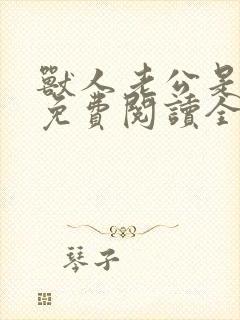 獸人老公是
免費閱讀全
琴子